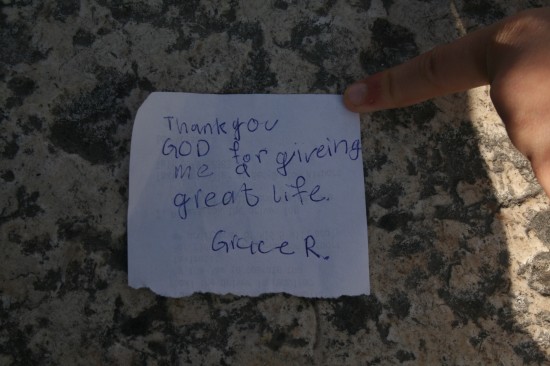 Thankyou
GOD for giveing
me a
great life.
Grace R.